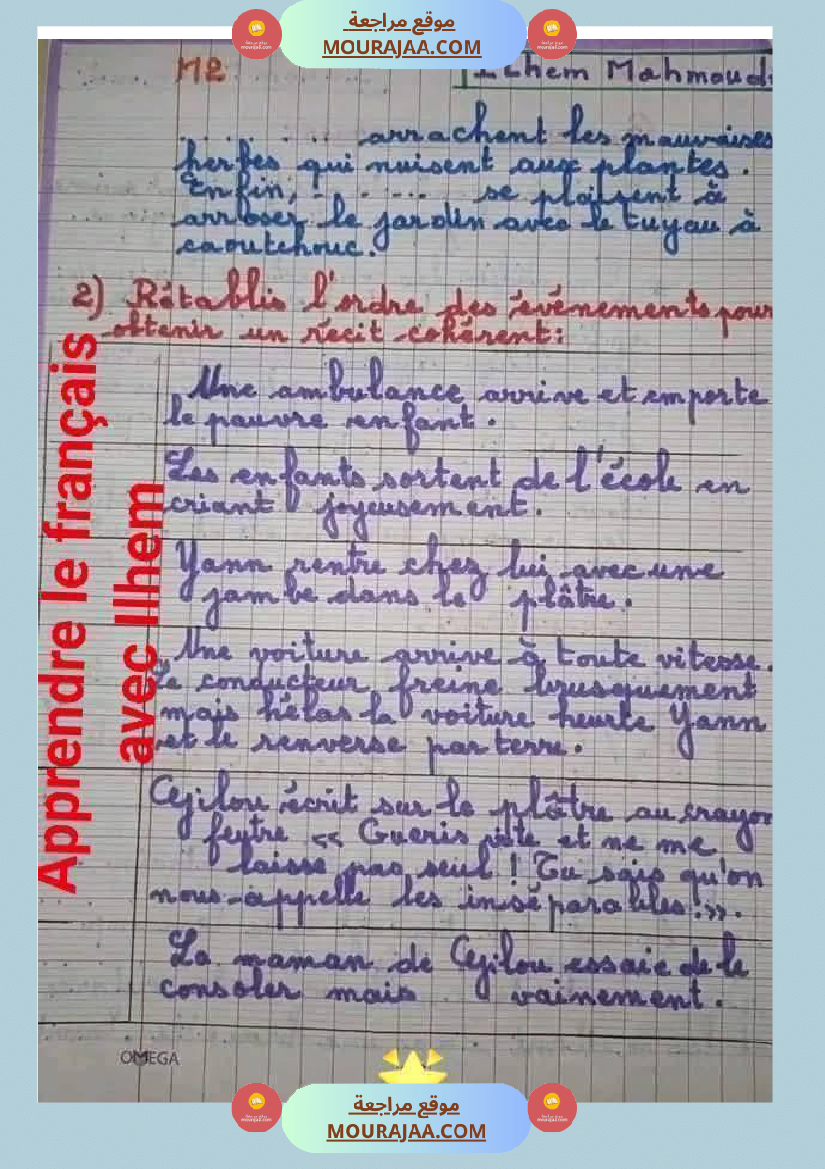 موقع مراجعة
MOURAJAA.COM
M2
Ilhem Mahmoudi
........ arrachent les mauvaises
herbes qui nuisent aux plantes.
Enfin, ........ se plaisent à
arroser le jardin avec le tuyau à
caoutchouc.
2) Rétablis l'ordre des événements pour
obtenir un récit cohérent:
Une ambulance arrive et emporte
le pauvre enfant.
Les enfants sortent de l'école en
criant joyeusement.
Yann rentre chez lui avec une
jambe dans le plâtre.
Une voiture arrive à toute vitesse.
Le conducteur freine brusquement
mais hélas la voiture heurte Yann
et le renverse par terre.
Cejilou écrit sur le plâtre au crayon
feutre << Gueris vite et ne me
laisse pas seul ! Tu sais qu'on
nous-appelle les inséparables! >>.
La maman de Cejilou essaie de le
consoler mais vainement.
Apprendre le français
avec Ilhem
OMEGA
موقع مراجعة
MOURAJAA.COM